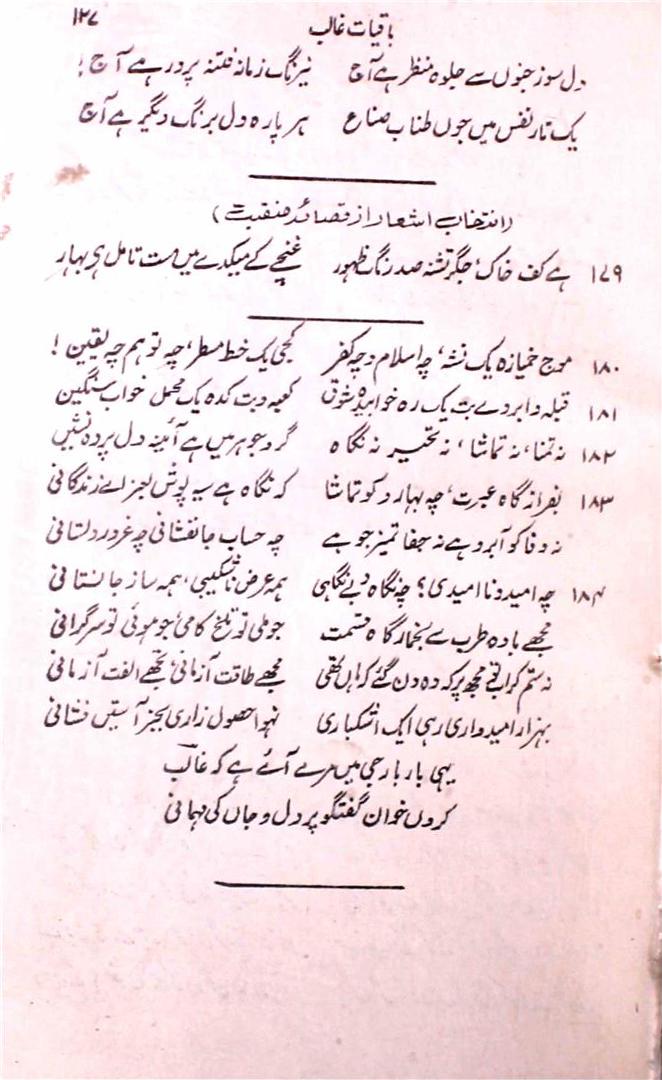 باقیات غالب
۱۳۷
دل سوز جنوں سے جلوہ منظر ہے آج نیرنگ زمانہ فتنہ پرور ہے آج !
یک تار نفس میں جوں طناب صناع ہر پارہ دل برنگ دیگر ہے آج
(انتخاب اشعار از قصائد منقبت)
۱۷۹ ہے کف خاک، جگر تشنہ صد رنگ ظہور غنچے کے میکدے میں مست تامل ہی بہار
۱۸۰ موج خمیازہ یک نشہ، چہ اسلام و چہ کفر کجی یک خط مسطر، چہ توہم چہ یقیں !
۱۸۱ قبلہ و ابروے بت یک رہ خوابیدہ شوق کعبہ و بت کدہ یک محمل خواب سنگیں
۱۸۲ نہ تمنا، نہ تماشا، نہ تحیر نہ نگاہ گرد جوہر میں ہے آئینہ دل پردہ نشیں
۱۸۳ بفرازگاہ عبرت، چہ بہار و کو تماشا کہ نگاہ ہے سیہ پوش بعزاے زندگانی
نہ وفا کو آبرو ہے نہ جفا تمیز جو ہے چہ حساب جانفشانی چہ غرور دلستانی
۱۸۴ چہ امید و ناامیدی؟ چہ نگاہ و بے نگاہی ہمہ عرض ناشکیبی، ہمہ ساز جانستانی
مجھے بادہ طرب سے بخمار گاہ قسمت جو ملی تو تلخ کامی، جو ہوئی تو سرگرانی
نہ ستم کر اب تو مجھ پر کہ وہ دن گئے کہ ہاں تھی مجھے طاقت آزمانی تجھے الفت آزمانی
بہزار امیدواری رہی ایک اشکباری نہوا حصول زاری بجز آستیں فشانی
یہی بار بار جی میں مرے آئے ہے کہ غالب
کروں خوان گفتگو پر دل و جاں کی مہمانی